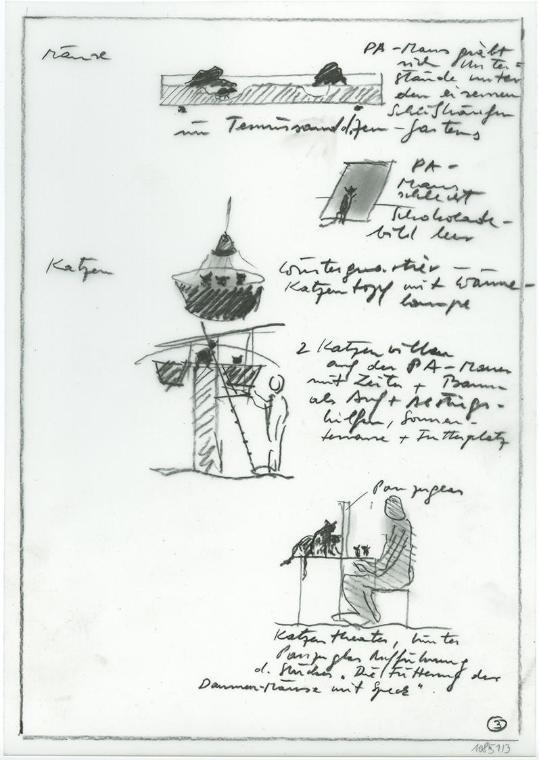 Mäuse
PA-Maus gräbt
sich Unter=
stände unter
den eisernen
im Tennissand d. Jen-Gartens
PA-
Maus
schleckt
Schokolade-
bild leer
Katzen
Winterquartier –
Katzentopf mit Wärme-
lampe
2 Katzenvillen
auf der PA-Mauer
mit Leiter + Baum
als Auf + Abstiegs-
hilfen, Sonnen-
terrasse + Futterplatz
Panzerglas
Katzentheater, hinter
Panzerglas Aufführung
d. Stückes „Die Fütterung der
Daumen-Mäuse mit Speck".
3
1085113